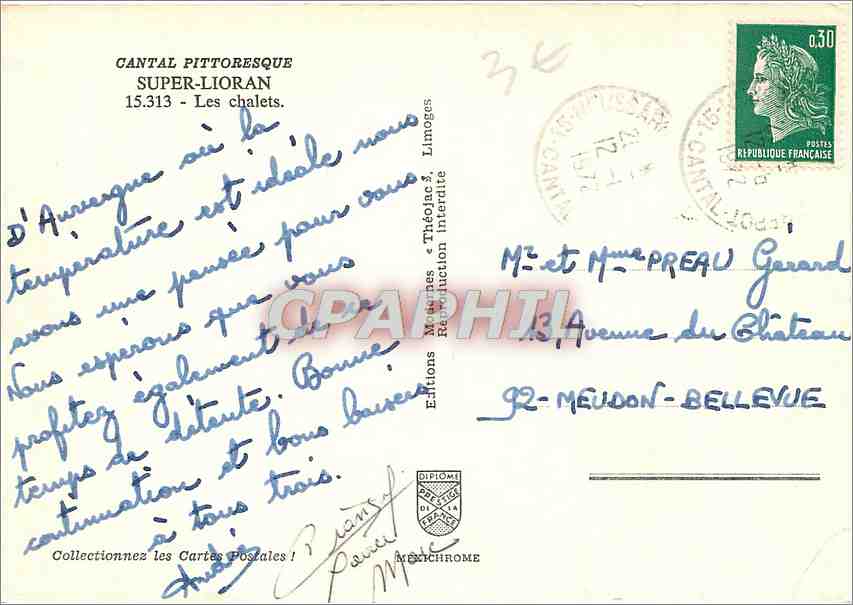 CANTAL PITTORESQUE
SUPER-LIORAN
15.313 - Les chalets.
D'Auvergne où la
température est idéale nous
avons une pensée pour vous.
Nous espérons que vous
profitez également de ce
temps de détente. Bonne
continuation et bons baisers
à tous trois.
Andrée
Collectionnez les Cartes Postales !
Marc
Editions Modernes « Théojac », Limoges
Reproduction interdite
DIPLOME
PRESTIGE
DE LA
FRANCE
MEXICHROME
3€
0,30
POSTES
REPUBLIQUE FRANÇAISE
15-
CANTAL
1972
Mr et Mme PREAU Gerard
13, Avenue du Château
92-MEUDON-BELLEVUE
CPAPHIL